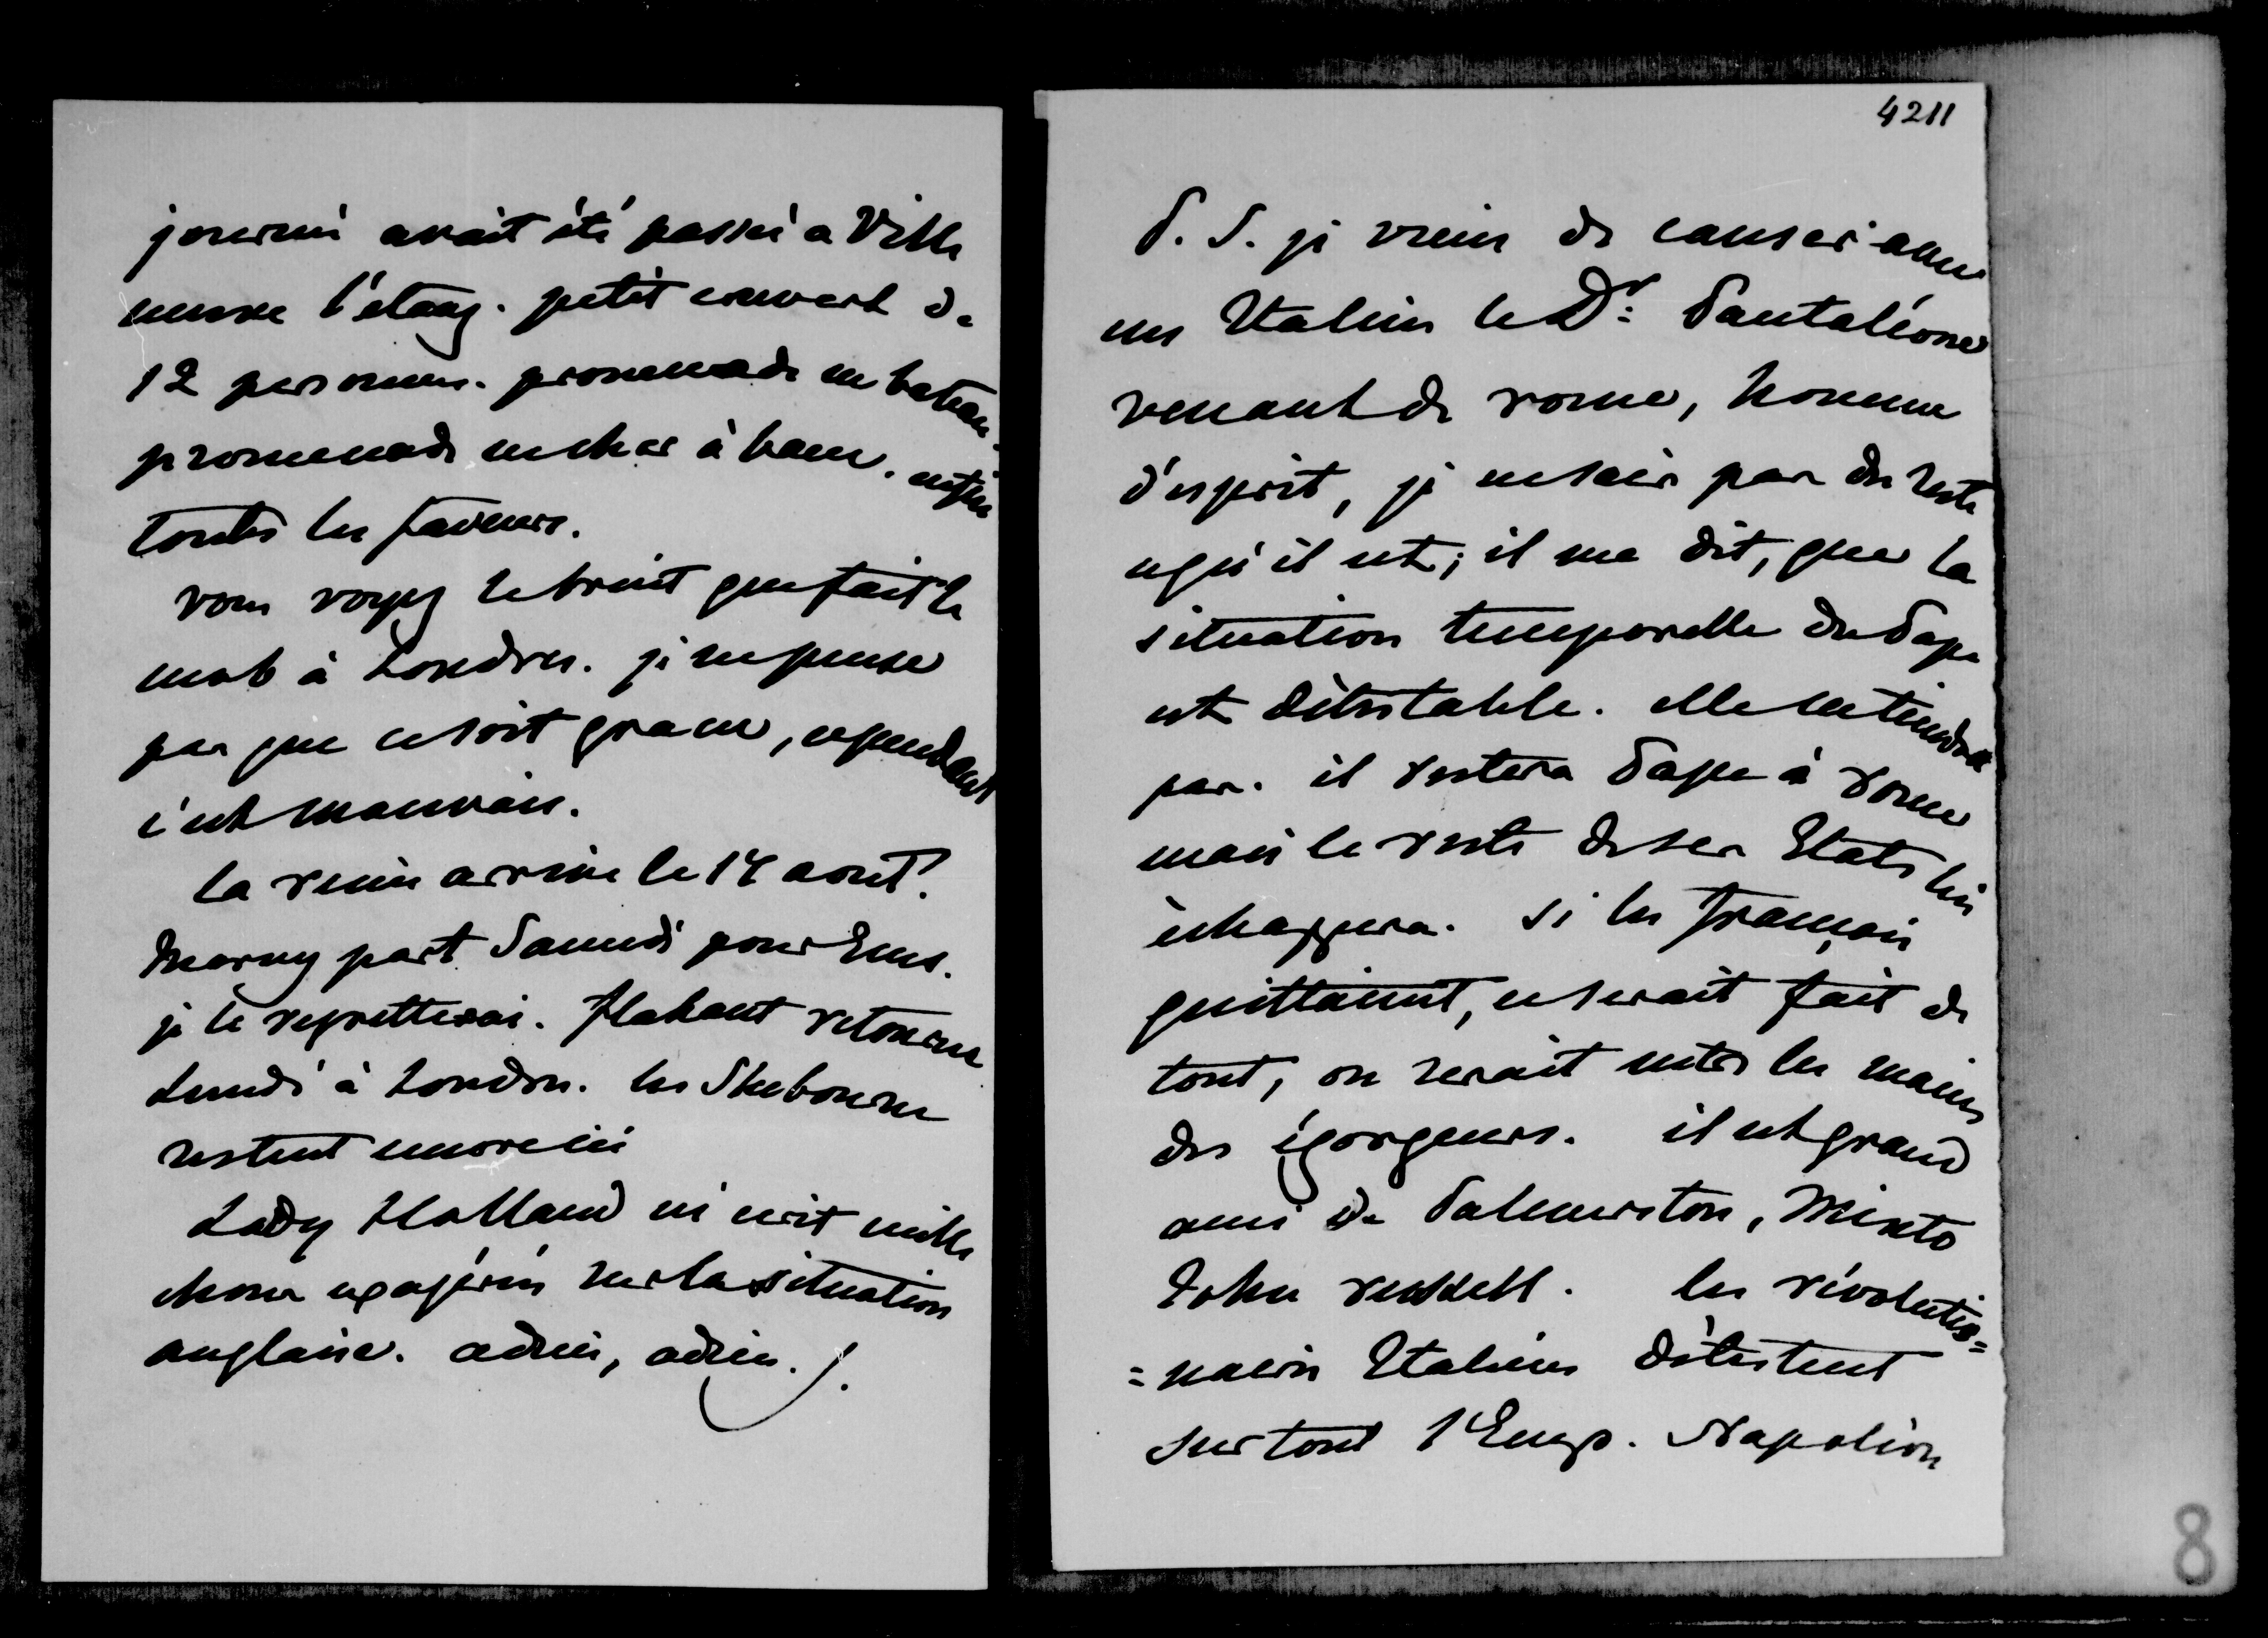 journée avait été passée a Ville
neuve l'étang. petit couvert de
12 personnes. promenade en bateau.
promenade en char à banc. enfin
toutes les faveurs.
vous voyez le bruit que fait le
mob à Londres. je ne pense
pas que ce soit grave, cependant
c'est mauvais.
la reine arrive le 17 aout.
Morny part Samedi pour Ems.
je le regretterai. Flahaut retourne
Lundi à Londres. les Shelbourne
restent encore ici
Lady Holland m'écrit mille
choses exagérées sur la situation
anglaise. adieu, adieu.
4211
P. S. je viens de causer avec
un Italien le Dr: Pantaléone
venant de rome, homme
d'esprit, je ne sais pas du reste
ce qu'il est; il me dit, que la
situation temporelle du Pape
est détestable. elle ne tiendra
pas. il restera Pape à rome
mais le reste de ses Etats lui
échappera. si les français
quittaient, ce serait fait de
tout, on serait entre les mains
des égorgeurs. il est grand
ami de Palmerston, Minto
John russell. les révolutio=
=naires Italiens détestent
surtout l'Emp. Napoléon
8